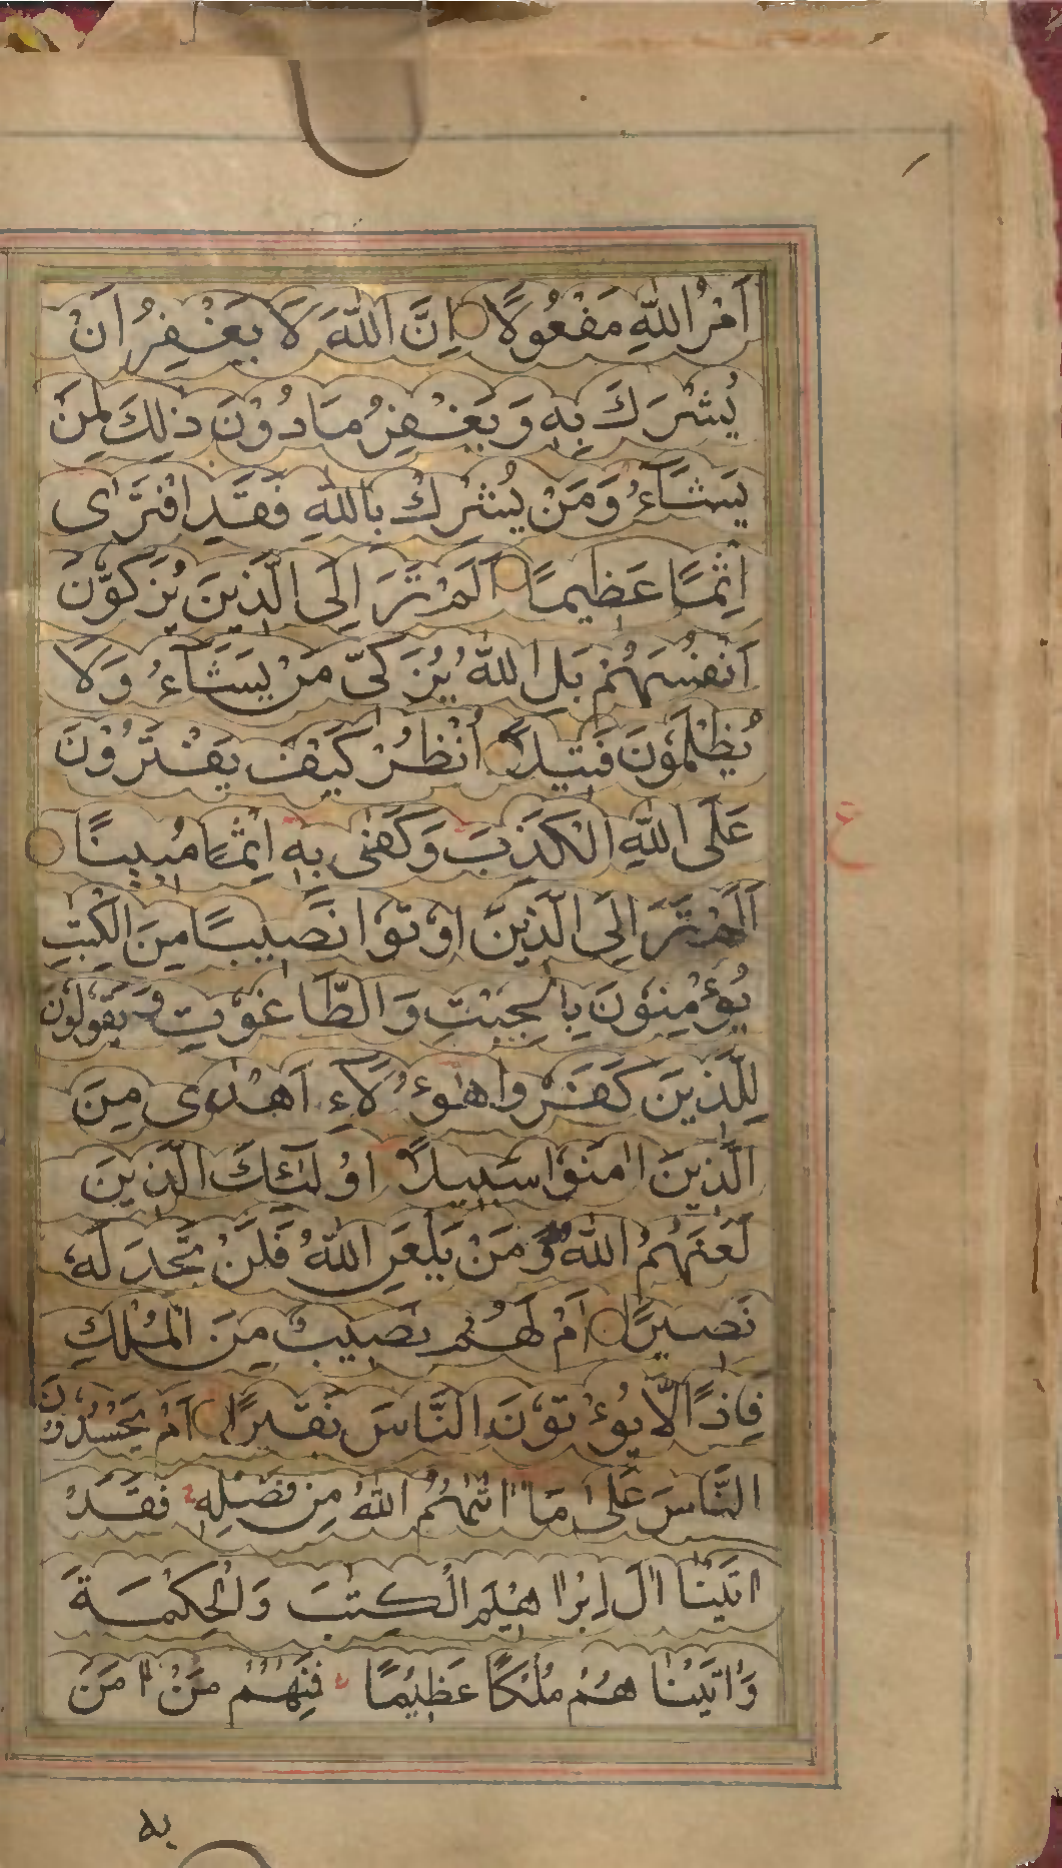 اَمْرُ اللّٰهِ مَفْعُولًا اِنَّ اللّٰهَ لَا يَغْفِرُ اَنْ
يُشْرَكَ بِهٖ وَيَغْفِرُ مَادُوْنَ ذٰلِكَ لِمَنْ
يَشَآءُ وَمَنْ يُشْرِكْ بِاللّٰهِ فَقَدِ افْتَرٰى
اِثْمًا عَظِيمًا اَلَمْ تَرَ اِلَى الَّذِينَ يُزَكُّوْنَ
اَنْفُسَهُمْ بَلِ اللّٰهُ يُزَكِّىْ مَنْ يَشَآءُ وَلَا
يُظْلَمُوْنَ فَتِيلًا اُنْظُرْ كَيْفَ يَفْتَرُوْنَ
عَلَى اللّٰهِ الْكَذِبَ وَكَفٰى بِهٖ اِثْمًا مُبِينًا
ع
اَلَمْ تَرَ اِلَى الَّذِينَ اُوْتُوْا نَصِيبًا مِنَ الْكِتٰبِ
يُؤْمِنُوْنَ بِالْجِبْتِ وَالطَّاغُوْتِ وَيَقُوْلُوْنَ
لِلَّذِينَ كَفَرُوا هٰٓؤُلَآءِ اَهْدٰى مِنَ
الَّذِينَ اٰمَنُوْا سَبِيلًا اُولٰٓئِكَ الَّذِينَ
لَعَنَهُمُ اللّٰهُ وَمَنْ يَلْعَنِ اللّٰهُ فَلَنْ تَجِدَ لَهٗ
نَصِيرًا اَمْ لَهُمْ نَصِيبٌ مِنَ الْمُلْكِ
فَاِذًا لَّا يُؤْتُوْنَ النَّاسَ نَقِيرًا اَمْ يَحْسُدُوْنَ
النَّاسَ عَلٰى مَا اٰتٰىهُمُ اللّٰهُ مِنْ فَضْلِهٖ فَقَدْ
اٰتَيْنَا اٰلَ اِبْرٰهِيْمَ الْكِتٰبَ وَالْحِكْمَةَ
وَاٰتَيْنَاهُمْ مُلْكًا عَظِيْمًا فَمِنْهُمْ مَنْ اٰمَنَ
به